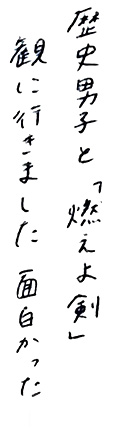 歴史男子と「燃えよ剣」
観に行きました 面白かった